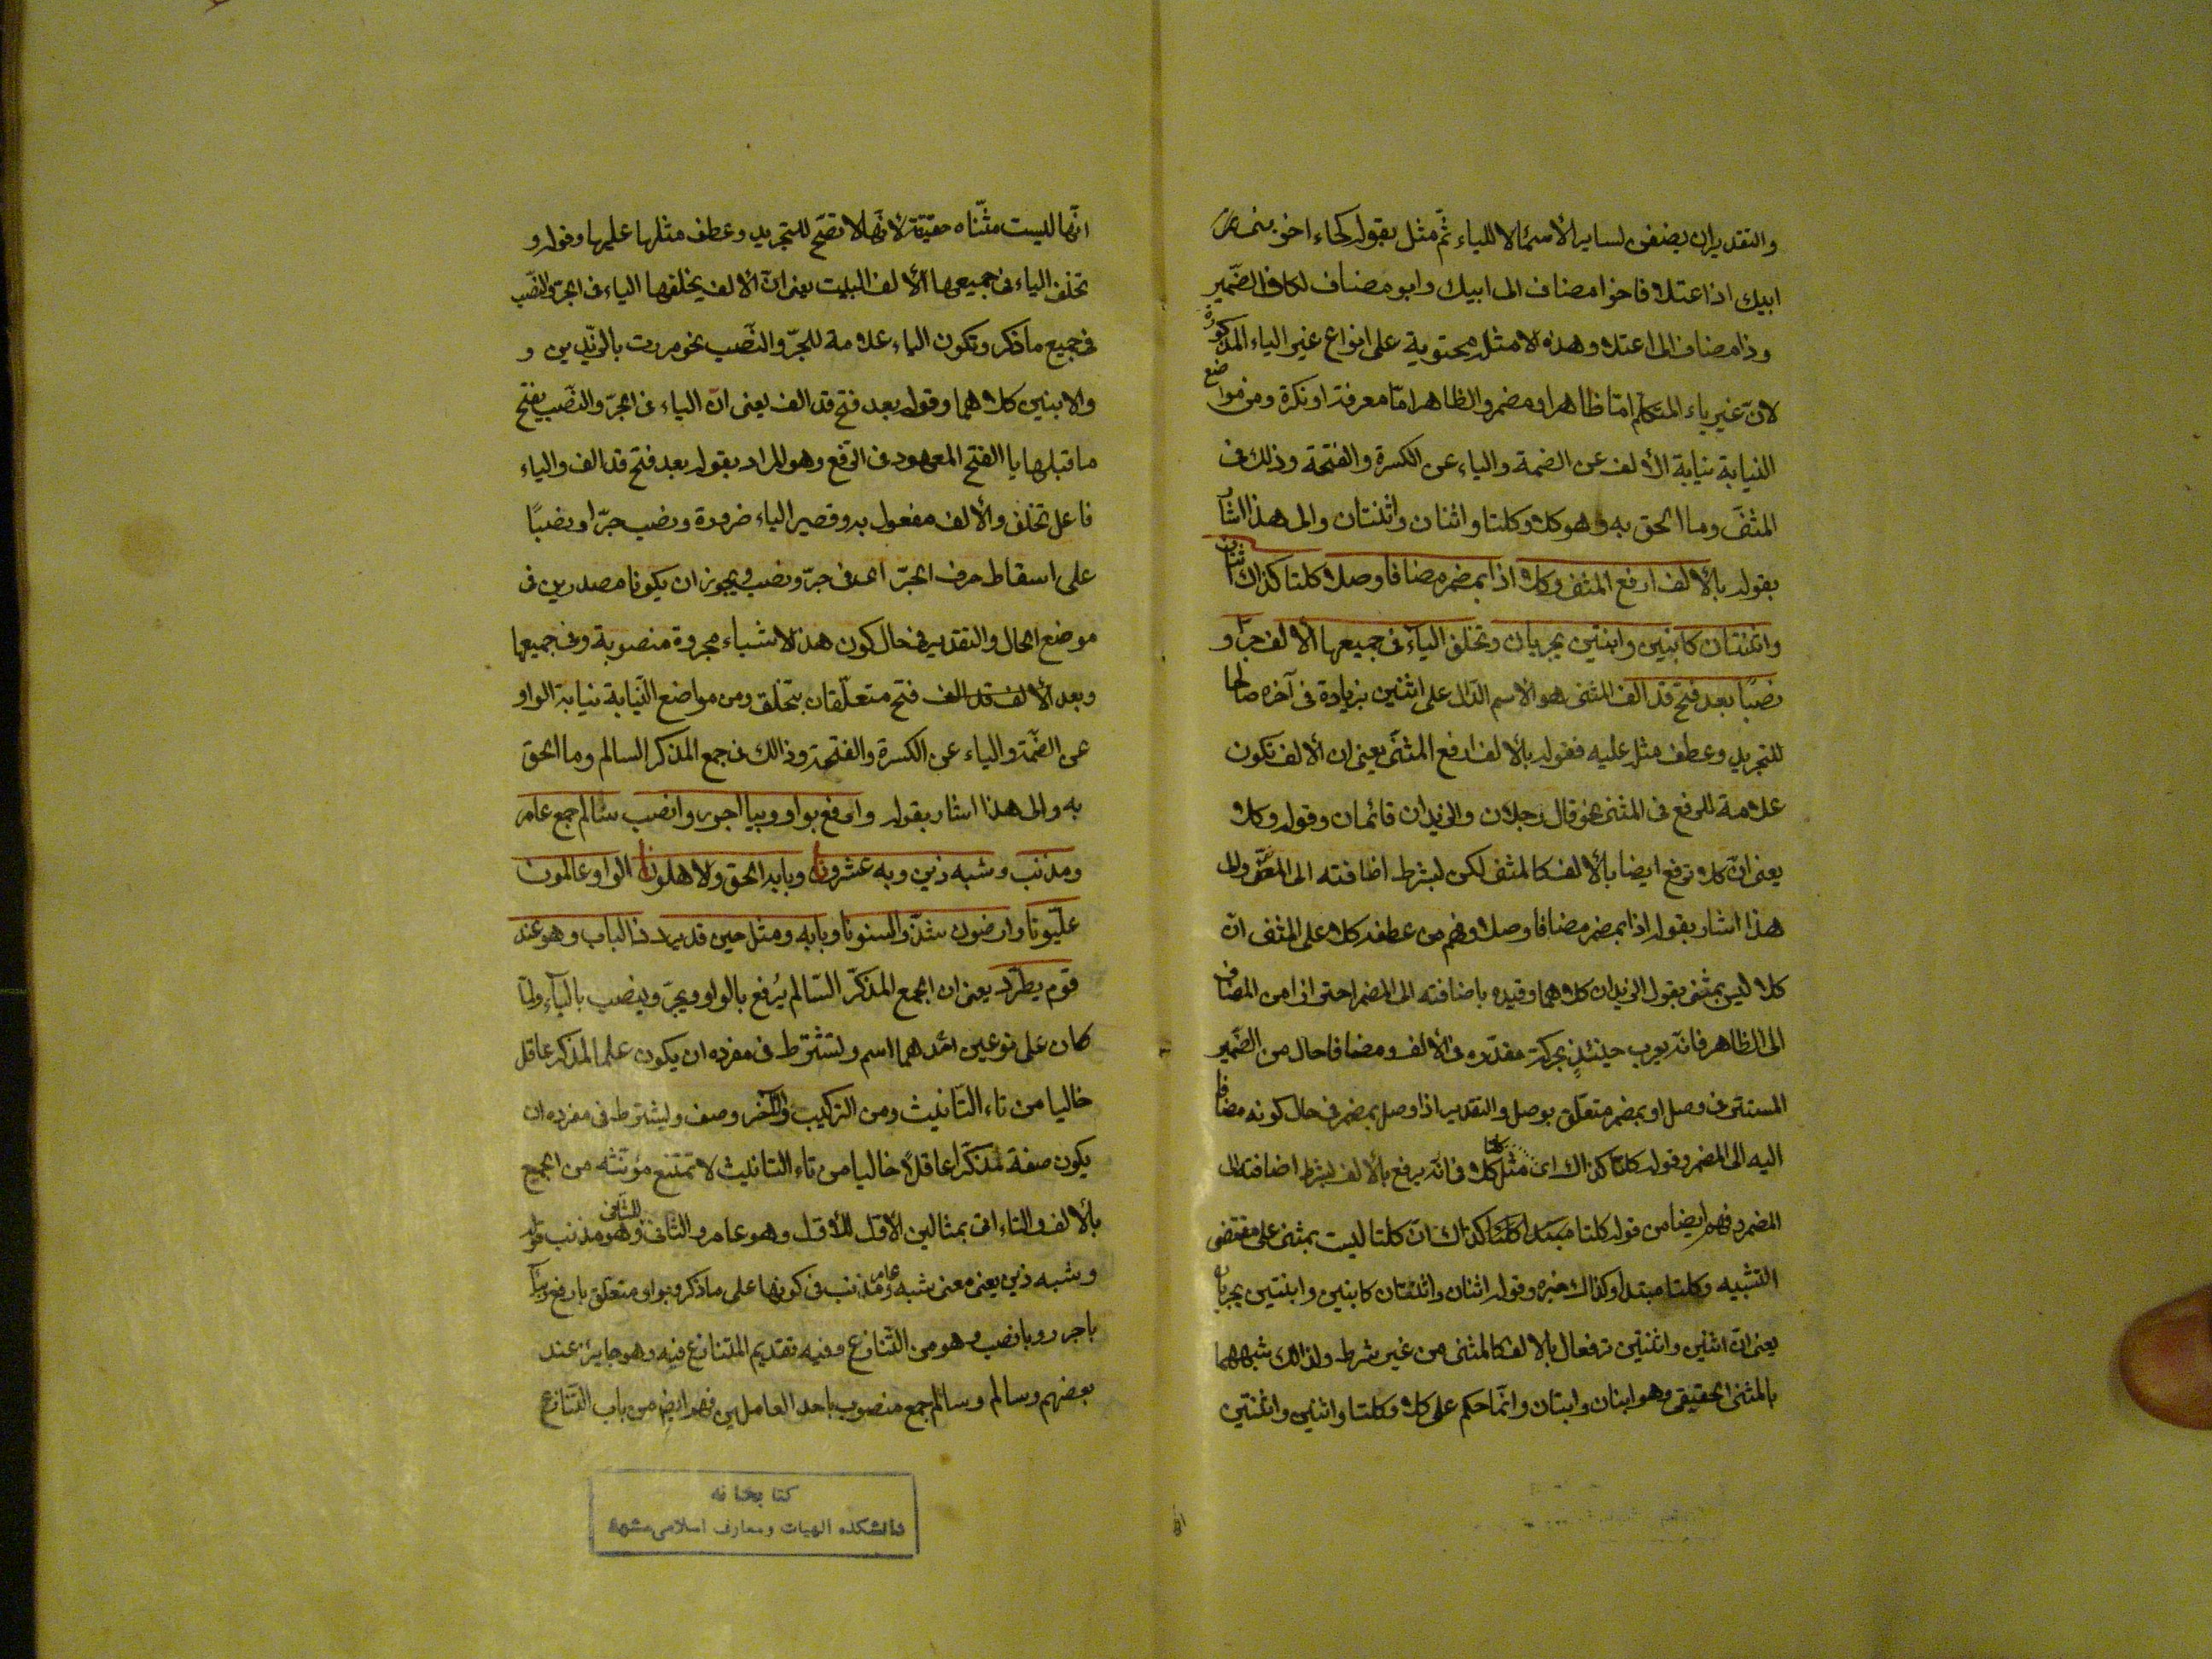 والتقدير ان يضفن لساير الأسماء لا للياء ثم مثل بقوله كجاء اخو
ابيك ذا اعتلا فاخوا مضاف الى ابيك وابو مضاف لكاف الضمير
وذا مضاف الى اعتلا وهذه الامثلة محتوية على انواع غير الياء المذكورة
لان غير ياء المتكلم امّا ظاهر او مضمر والظاهر امّا معرفة او نكرة ومن مواضع
النيابة نيابة الألف عن الضمة والياء عن الكسرة والفتحة وذلك فى
المثنّى وما الحق به وهو كلا وكلتا واثنان واثنتان والى هذا اشار
بقوله بالألف ارفع المثنى وكلا اذا بمضمر مضافا وصلا كلتا كذاك اثنان
واثنتان كابنين وابنتين يجريان وتخلف الياء فى جميعها الألف جرّا و
نصبًا بعد فتح قد الف المثنى هو الاسم الدّال على اثنين بزيادة فى آخره صالحا
للتجريد وعطف مثله عليه فقوله بالألف ارفع المثنّى يعنى ان الألف تكون
علامة للرفع فى المثنى نحو قال رجلان والزيدان قائمان وقوله وكلا
يعنى انّ كلا ترفع ايضا بالألف كالمثنى لكن بشرط اضافته الى المضمر والى
هذا اشار بقوله اذا بمضمر مضافا وصلا وفهم من عطفه كلا على المثنى انّ
كلا ليس بمثنى بقول الزيدان كلاهما وقيده باضافته الى المضمر احترازا من المضاف
الى الظاهر فانّه يعرب حينئذٍ بحركة مقدّره فى الألف ومضافا حال من الضّمير
المستتر فى وصل او بمضمر متعلّق بوصل والتقدير اذا وصل بمضمر فى حال كونه مضافا
اليه الى المضمر وقوله كلتا كذاك اى مثل كلا فانّه يرفع بالألف بشرط اضافته الى
المضمر وفهم ايضا من قوله كلتا كذاك ان كلتا ليست بمثنى على مقتضى
التشبيه وكلتا مبتدا وكذاك خبره وقوله اثنان واثنتان كابنين وابنتين يجريان
يعنى انّ اثنين واثنتين ترفعان بالألف كالمثنى من غير شرط ولذالك شبههما
بالمثنى الحقيقى وهو ابنان وابنتان وانّما حكم على كلا وكلتا واثنين واثنتين
انّها ليست مثنّاه حقيقة لأنّها لا تصحّ للتجريد وعطف مثلها عليها وقوله و
تخلف الياء فى جميعها الألف البيت يعنى انّ الألف يخلفها الياء فى الجرّ والنصب
فى جميع ما ذكر وتكون الياء علامة للجرّ والنّصب نحو مررت بالزيدين و
والابنين كلاهما وقوله بعد فتح قد الف يعنى انّ الياء فى الجرّ والنّصب يفتح
ما قبلها يا الفتح المعهود فى الرّفع وهو المراد بقوله بعد فتح قد الف والياء
فاعل تخلف والألف مفعول به وقصير الياء ضرورة ونصب جرّا ونصبًا
على اسقاط حرف الجرّ اى فى جرّ ونصب ويجوز ان يكونا مصدرين فى
موضع الحال والتقدير فى حال كون هذه الاشياء مجرورة منصوبة وفى جميعها
وبعد الألف قد الف فتح متعلّقان بتخلف ومن مواضع النّيابة نيابة الواو
عن الضّمة والياء عن الكسرة والفتحة وذالك فى جمع المذكر السالم وما الحق
به والى هذا اشار بقوله وارفع بواو وبيا اجرر وانصب سالم جمع عامر
ومذنب وشبه ذين وبه عشرونا وبابه الحق والاهلونا اولوا وعالمون
عليّونا وارضون شذّ والسنونا وبابه ومثل حين قد يرد ذا الباب وهو عند
قوم يطّرد يعنى ان الجمع المذكّر السّالم يُرفع بالواو ويجرّ وينصب بالياء ولمّا
كان على نوعين احدهما اسم ويشترط فى مفرده ان يكون علما لمذكر عاقل
خاليا من تاء التّأنيث ومن التركيب والآخر وصف ويشترط فى مفرده ان
يكون صفة لمذكّر عاقلا خاليا من تاء التانيث لا تمتنع مؤنثه من الجمع
بالألف والتاء اتى بمثالين الأوّل للأوّل وهو عامر والثانى للثّانى وهو مذنب قوله
وشبه ذين يعنى معنى شبه عامر ومذنب فى كونها على ما ذكر وبواو متعلق بارفع وبيا
باجرر وبانصب وهو من التّنازع وفيه تقديم المتنازع فيه وهو جايز عند
بعضهم وسالم وسالم جمع منصوب باحد العاملين فهو ايضا من باب التّنازع
كتابخانه
دانشكده الهيات ومعارف اسلامى مشهد